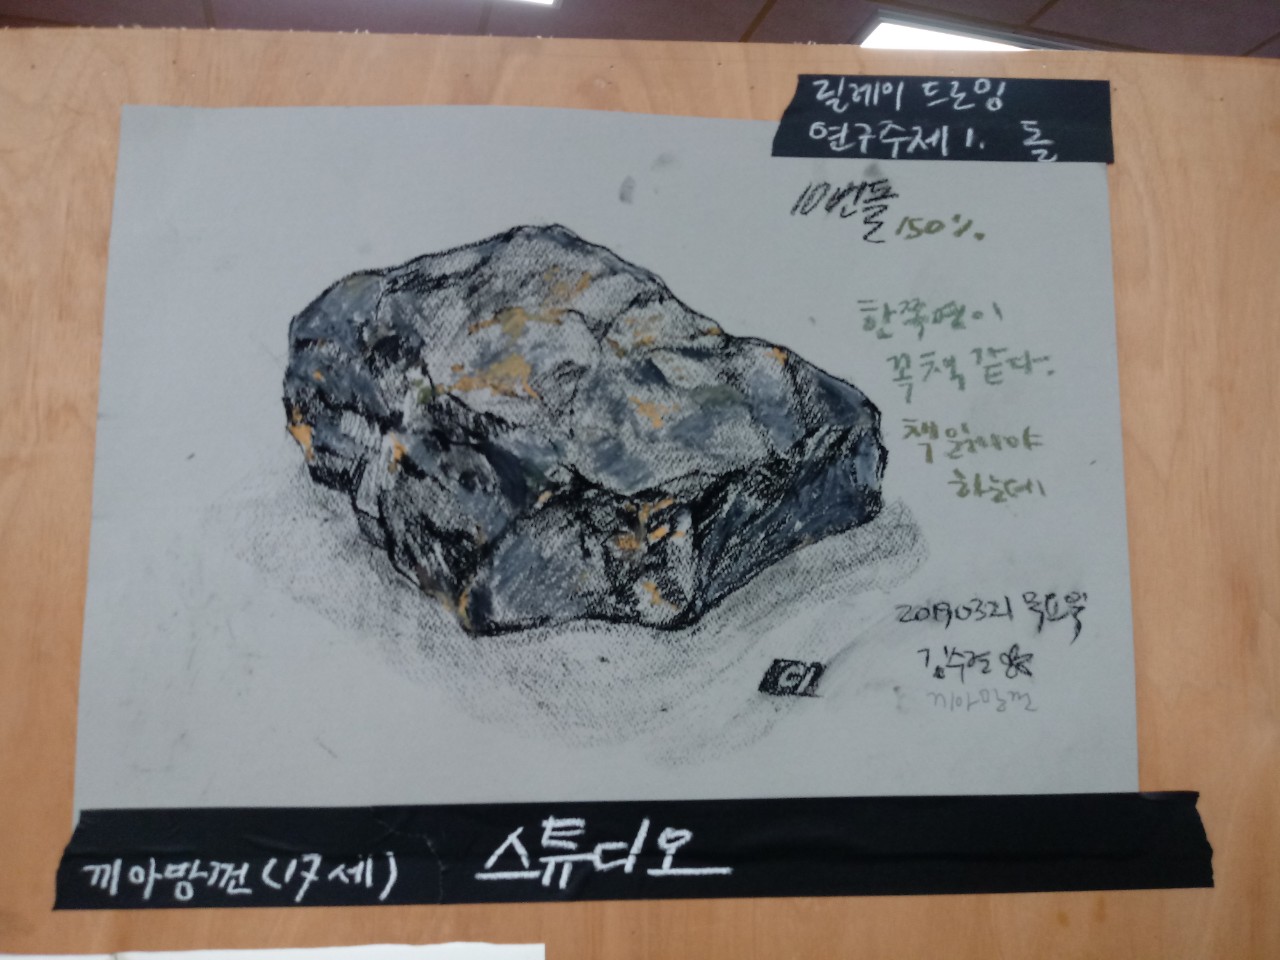 릴레이 드로잉
연구주제 1. 돌
10번돌
150%.
한쪽면이
꼭 책 같다.
책 읽어야
하는데
20190321 목요일
김수연
끼아망껀
끼아망껀(17세)
스튜디오